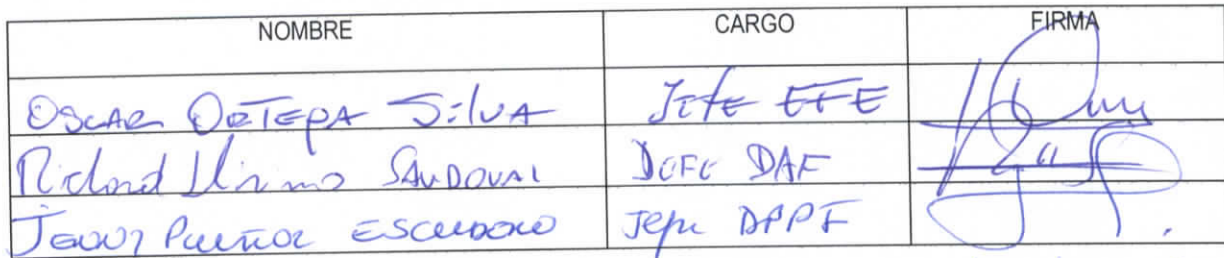 NOMBRE CARGO FIRMA
OSCAR ORTEGA SilVA Jefe EFE
Richard SANDOVAL JEFE DAF
JENNY ESCUDERO Jefe DPPF